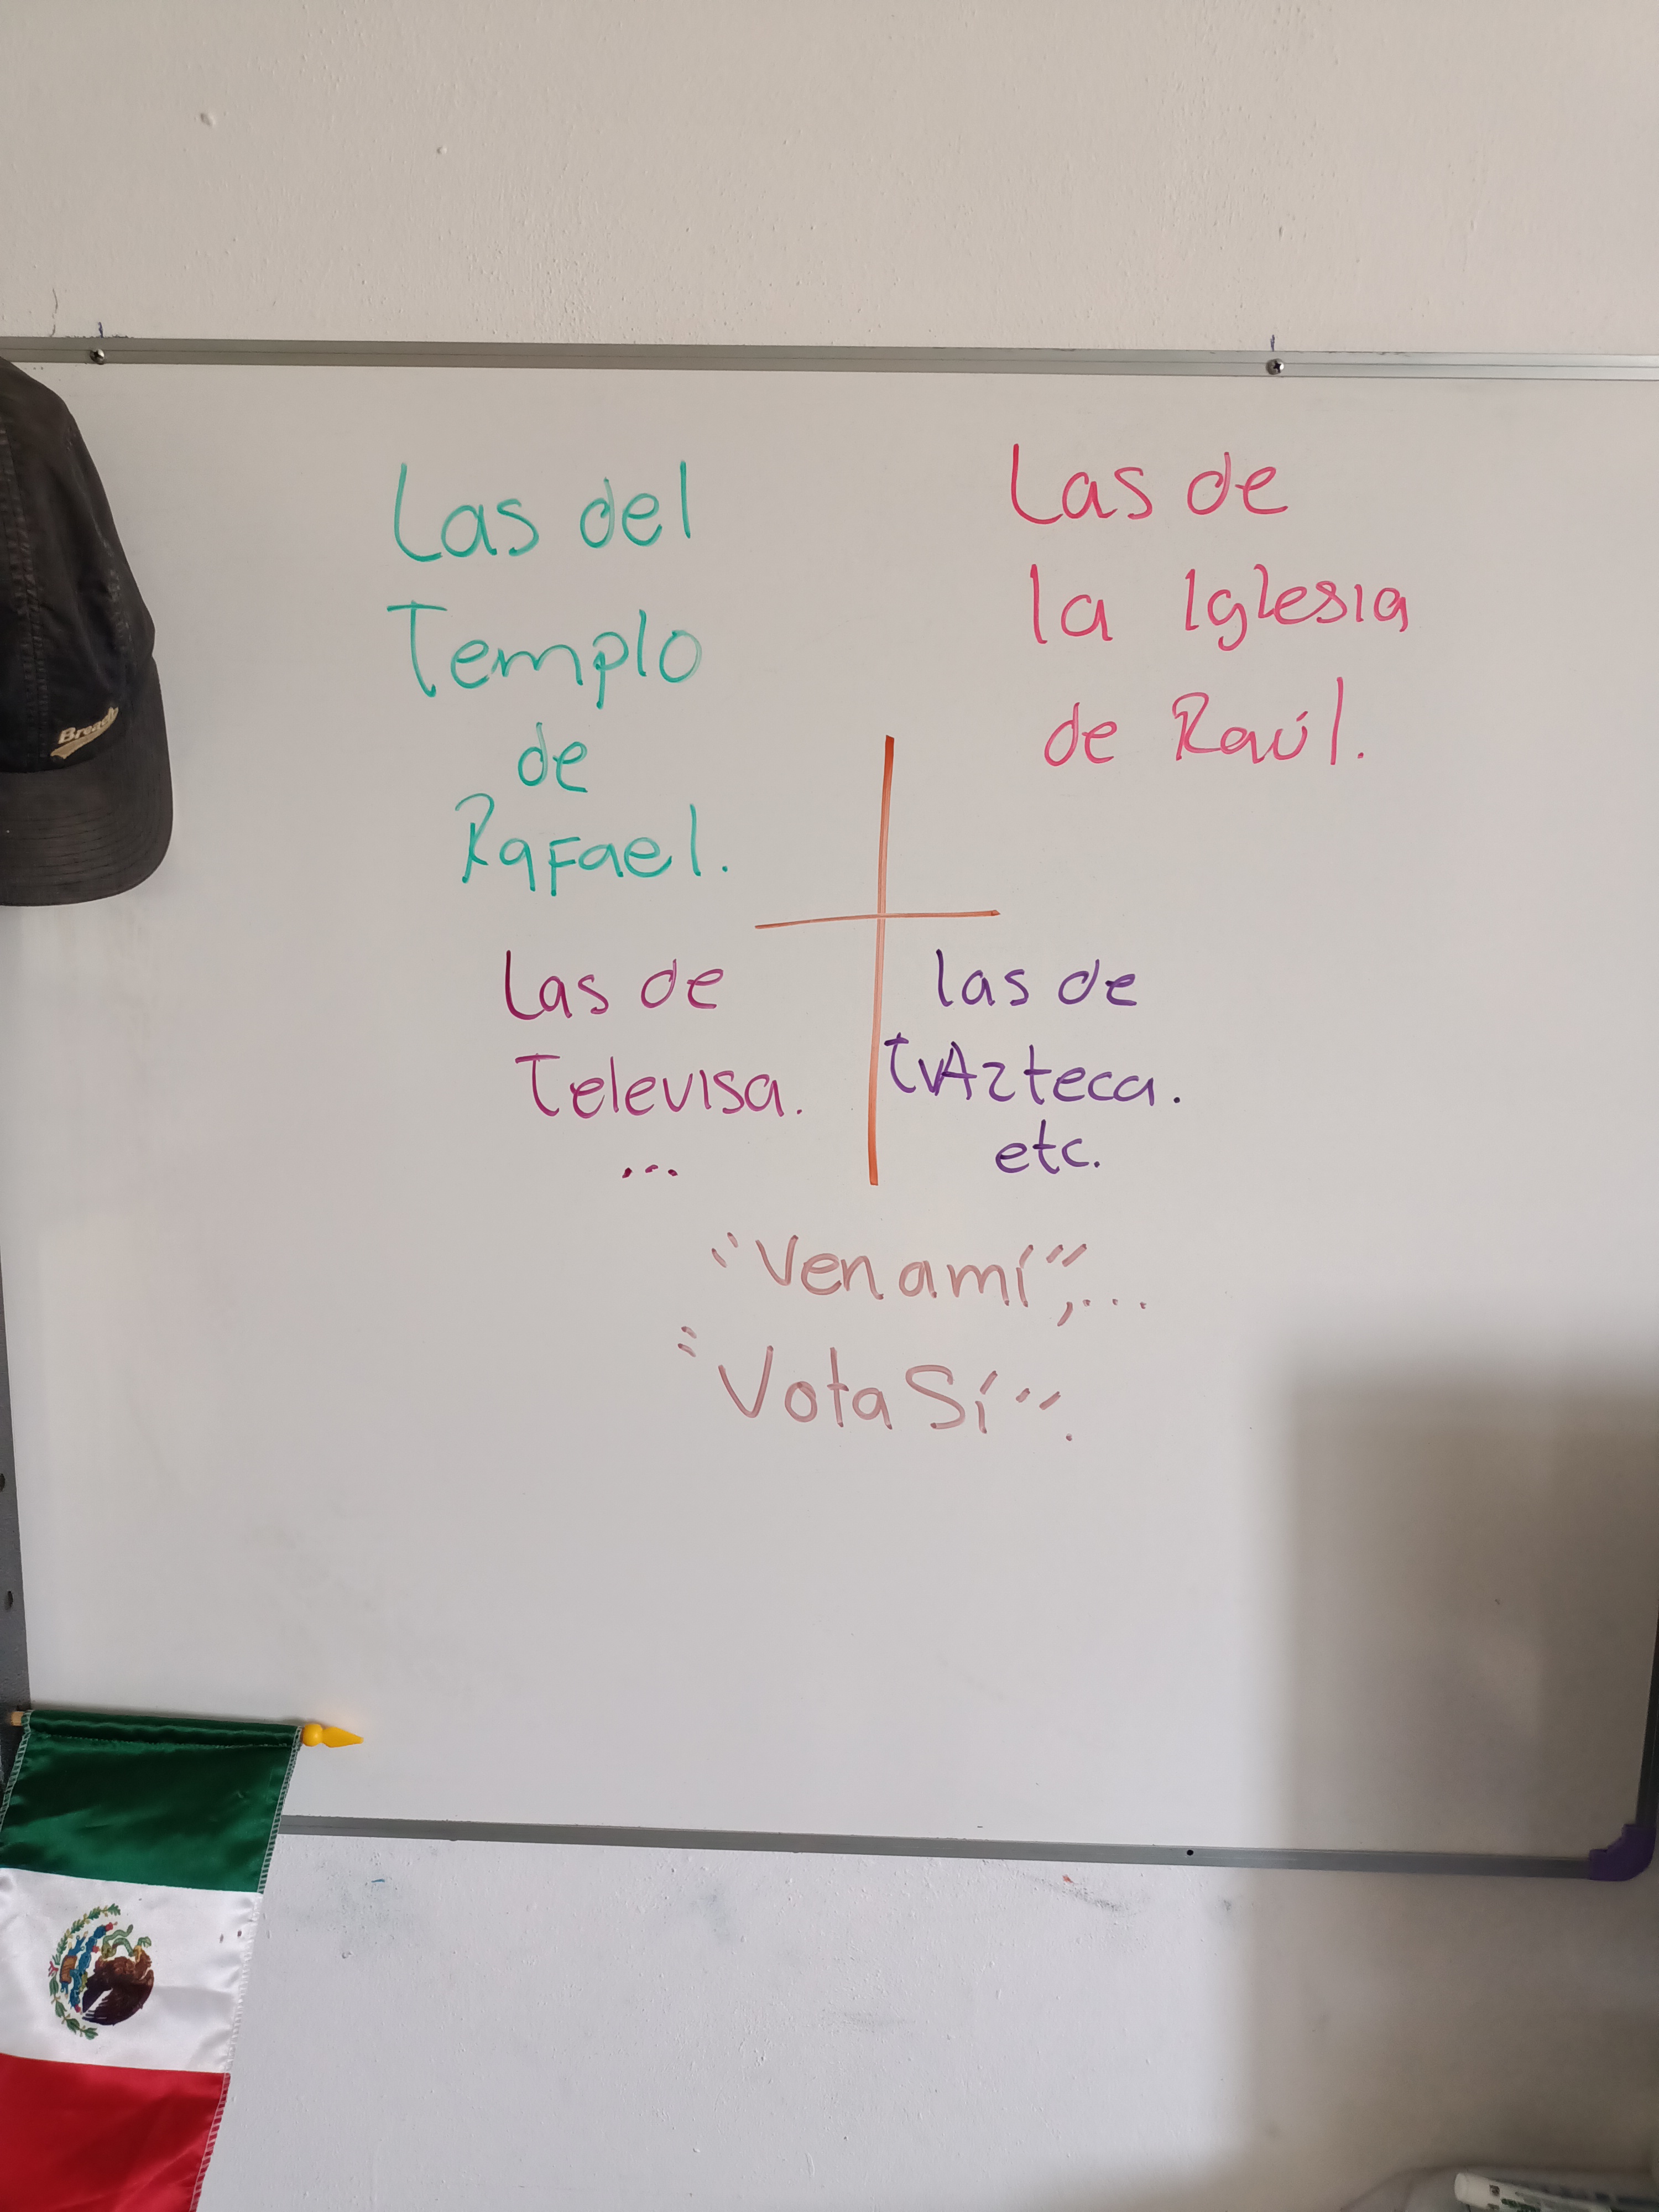 Las del
Templo
de
Rafael.
Las de
la Iglesia
de Raúl.
Las de
Televisa.
...
las de
tvAzteca.
etc.
"Ven a mí",...
"Vota Sí".
Breach